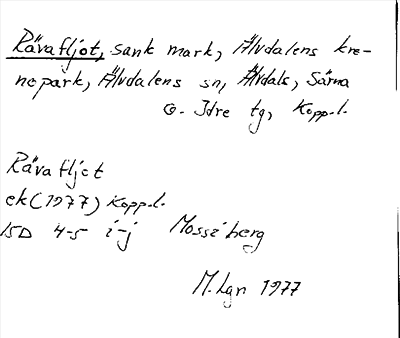 Rävafljot, sank mark, Älvdalens kro-
nopark, Älvdalens sn, Älvdals, Särna
o. Idre tg, Kopp.l.
Rävafljot
ek (1977) Kopp.l.
15D 4-5 i-j Mossiberg
M.Lgn 1977